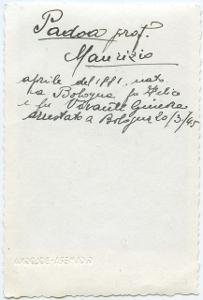 Padoa prof.
Maurizio
aprile del 1881, nato
a Bologna, fu Felice
e fu Vivanti Ginevra
arrestato a Bologna 20/3/45